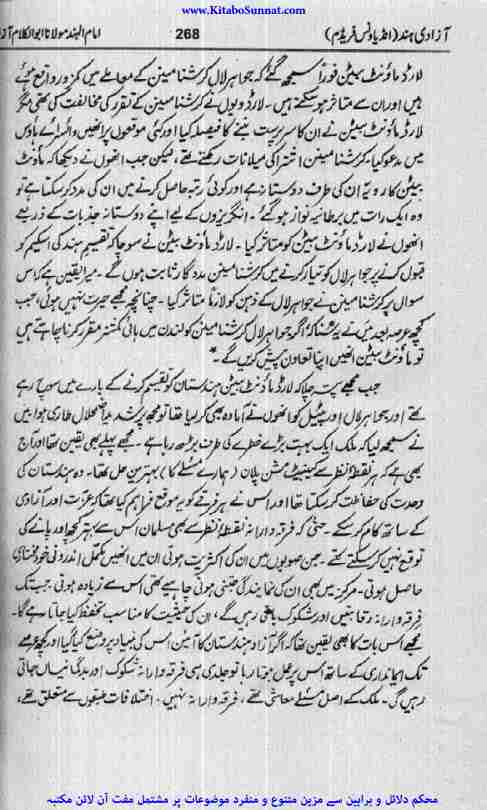 www.KitaboSunnat.com
آزادی ہند (انڈیا ونس فریڈم) 268 امام الہند مولانا ابوالکلام آزا
لارڈ ماؤنٹ بیٹن فوراً سمجھ گئے کہ جواہر لال کرشنا مینن کے معاملے میں کمزور واقع ہوئے
ہیں اور ان سے متاثر ہو سکتے ہیں۔ لارڈ ویول نے کرشنا مینن کے تقرر کی مخالفت کی تھی مگر
لارڈ ماؤنٹ بیٹن نے ان کا سرپرست بننے کا فیصلہ کیا اور کئی موقعوں پر انھیں وائسرائے ہاؤس
میں مدعو کیا۔ کرشنا مینن اشتراکی میلانات رکھتے تھے، لیکن جب انھوں نے دیکھا کہ ماؤنٹ
بیٹن کا رویہ ان کی طرف دوستانہ ہے اور کوئی رتبہ حاصل کرنے میں ان کی مدد کر سکتا ہے تو
وہ ایک رات میں برطانیہ نواز ہو گئے۔ انگریزوں کے لیے اپنے دوستانہ جذبات کے ذریعے
انھوں نے لارڈ ماؤنٹ بیٹن کو متاثر کیا۔ لارڈ ماؤنٹ بیٹن نے سوچا کہ تقسیم ہند کی اسکیم کو
قبول کرنے پر جواہر لال کو تیار کرنے میں کرشنا مینن مددگار ثابت ہوں گے۔ میرا یقین ہے کہ اس
سوال پر کرشنا مینن نے جواہر لال کے ذہن کو لازماً متاثر کیا۔ چنانچہ مجھے حیرت نہیں ہوئی، جب
کچھ عرصہ بعد میں نے یہ سنا کہ اگر جواہر لال کرشنا مینن کو لندن میں ہائی کمشنر مقرر کرنا چاہتے ہیں
تو ماؤنٹ بیٹن انھیں اپنا تعاون پیش کریں گے۔*
جب مجھے پتہ چلا کہ لارڈ ماؤنٹ بیٹن ہندستان کو تقسیم کرنے کے بارے میں سوچ رہے
تھے اور جواہر لال اور پٹیل کو انھوں نے آمادہ بھی کر لیا تھا تو مجھ پر شدید اضمحلال طاری ہوا۔ میں
نے سمجھ لیا کہ ملک ایک بہت بڑے خطرے کی طرف بڑھ رہا ہے۔ مجھے پہلے بھی یقین تھا اور آج
بھی ہے کہ ہر نقطۂ نظر سے کیبنیٹ مشن پلان (ہمارے مسئلے کا) بہترین حل تھا۔ وہ ہندستان کی
وحدت کی حفاظت کر سکتا تھا اور اس نے ہر فرقے کو یہ موقع فراہم کیا تھا کہ عزت اور آزادی
کے ساتھ کام کر سکے۔ حتیٰ کہ فرقہ وارانہ نقطۂ نظر سے بھی مسلمان اس سے بہتر کچھ اور پانے کی
توقع نہیں کر سکتے تھے۔ جن صوبوں میں ان کی اکثریت ہوتی ان میں انھیں مکمل اندرونی خود مختاری
حاصل ہوتی۔ مرکز میں بھی ان کی نمایندگی جتنی ہونی چاہیے تھی اس سے زیادہ ہوتی، جب تک
فرقہ وارانہ رقابتیں اور شکوک باقی رہیں گے، ان کی حیثیت کا مناسب تحفظ کیا جاتا رہے گا۔
مجھے اس بات کا بھی یقین تھا کہ اگر آزاد ہندستان کا آئین اس کی بنیاد پر وضع کیا گیا اور کچھ عرصے
تک ایمانداری کے ساتھ اس پر عمل ہوتا رہا تو جلد ہی فرقہ وارانہ شکوک اور بدگمانیاں جاتی
رہیں گی۔ ملک کے اصل مسئلے معاشی تھے، فرقہ وارانہ نہیں۔ اختلافات طبقوں سے متعلق تھے،
محکم دلائل و براہین سے مزین متنوع و منفرد موضوعات پر مشتمل مفت آن لائن مکتبہ